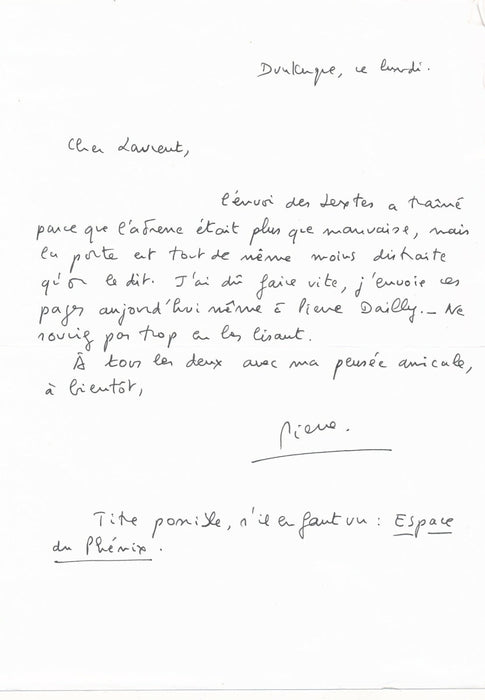 Dunkerque, ce lundi.
Cher Laurent,
l'envoi des textes a traîné
parce que l'adresse était plus que mauvaise, mais
la poste est tout de même moins distraite
qu'on le dit. J'ai dû faire vite, j'envoie ces
pages aujourd'hui même à Pierre Dailly. _ Ne
rougis pas trop en les lisant.
À tous les deux avec ma pensée amicale,
à bientôt,
Pierre.
Titre possible, s'il en faut un : Espace
du Phénix.